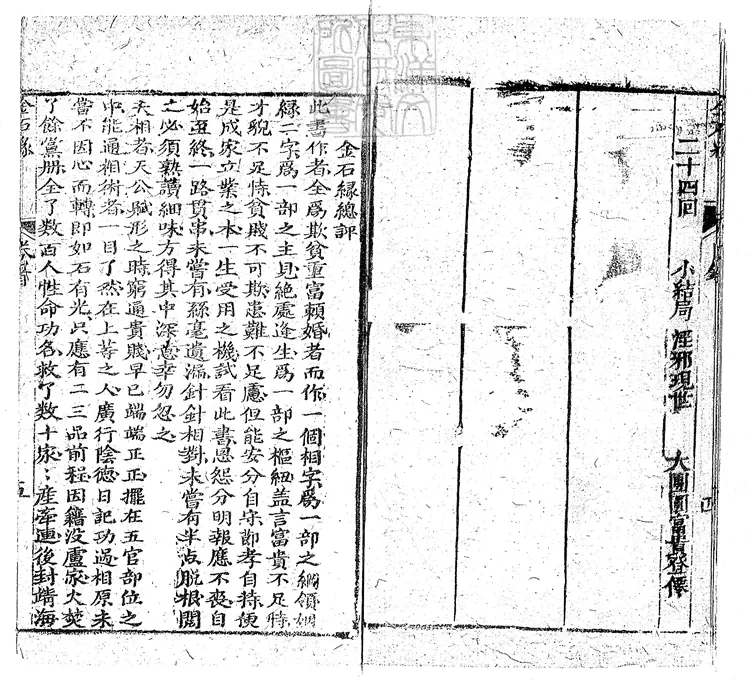 二十四回　小結局淫邪現世　大團圓富貴登僊
四
金石縁總評
此書作者全爲欺貧重富頼婚者而作一個相字爲一部之綱領姻
縁二字爲一部之主見絶處逢生爲一部之樞紐盖言富貴不足恃
才貌不足恃貧賤不可欺患難不足慮但能安分自守節孝自持便
是成家立業之本一生受用之機試看此書恩怨分明報應不爽自
始至終一路貫串未嘗有絲毫遺漏針針相對未嘗有半点脱根閲
之必須熟讀細味方得其中深意幸勿忽之
夫相者天公賦形之時窮通貴賤早已端端正正擺在五官部位之
中能通相術者一目了然在上等之人廣行陰德日記功過相原未
嘗不因心而轉即如石有光只應有二三品前程因籍没盧家火焚
了餘黨册全了数百人性命功名救了数十家家産牽連後封靖海
金石縁
五